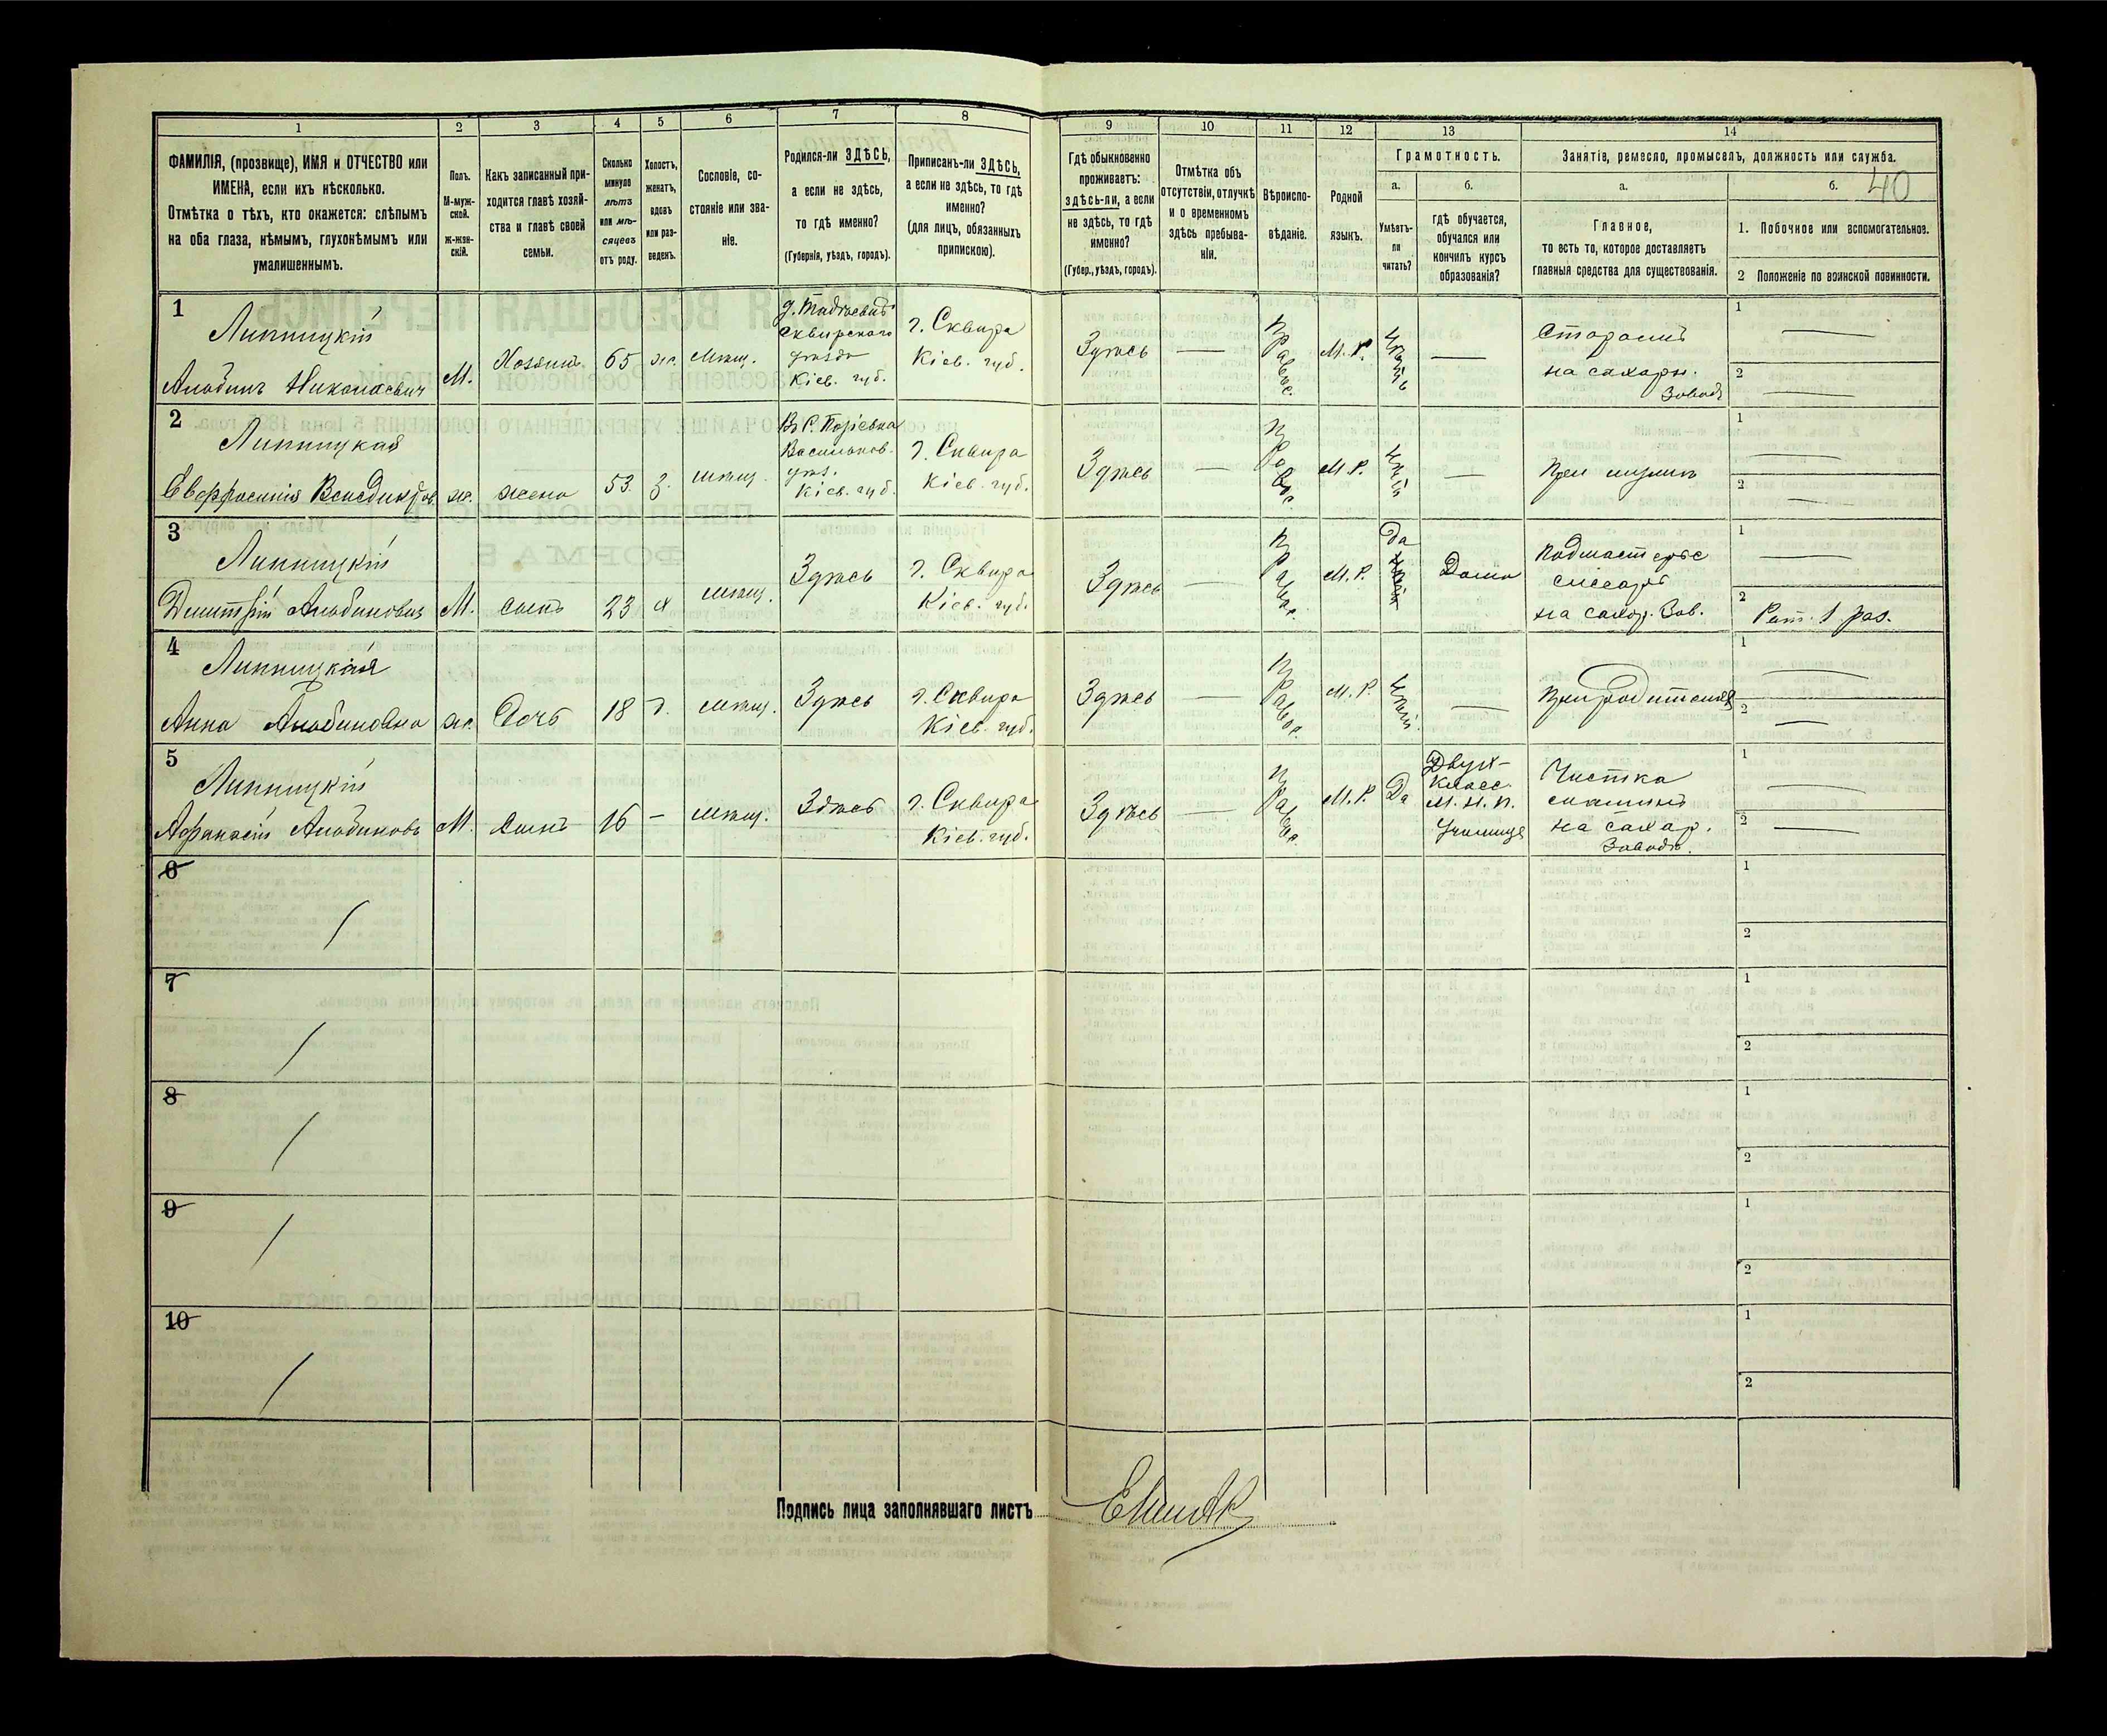 1 2 3 4 5 6 7 8 9 10 11 12 13 14
ФАМИЛІЯ, (прозвище), ИМЯ и ОТЧЕСТВО или
ИМЕНА, если ихъ нѣсколько.
Отмѣтка о тѣхъ, кто окажется: слѣпымъ
на оба глаза, нѣмымъ, глухонѣмымъ или
умалишеннымъ.
Полъ.
М-муж-
ской.
ж-жен-
скій.
Какъ записанный при-
ходится главѣ хозяй-
ства и главѣ своей
семьи.
Сколько
минуло
лѣтъ
или мѣ-
сяцевъ
отъ роду.
Холостъ,
женатъ,
вдовъ
или раз-
веденъ.
Сословіе, со-
стояніе или зва-
ніе.
Родился-ли ЗДѢСЬ,
а если не здѣсь,
то гдѣ именно?
(Губернія, уѣздъ, городъ).
Приписанъ-ли ЗДѢСЬ,
а если не здѣсь, то гдѣ
именно?
(для лицъ, обязанныхъ
припискою).
Гдѣ обыкновенно
проживаетъ:
здѣсь-ли, а если
не здѣсь, то гдѣ
именно?
(Губер., уѣздъ, городъ).
Отмѣтка объ
отсутствіи, отлучкѣ
и о временномъ
здѣсь пребыва-
ніи.
Вѣроиспо-
вѣданіе.
Родной
языкъ.
Грамотность.
а.
Умѣетъ-
ли
читать?
б.
гдѣ обучается,
обучался или
кончилъ курсъ
образованія?
Занятіе, ремесло, промыселъ, должность или служба.
а.
Главное,
то есть то, которое доставляетъ
главныя средства для существованія.
б.
40
1. Побочное или вспомогательное.
2 Положеніе по воинской повинности.
1
Липницкій
Николаевич
М.
Хозяинъ
65
ж.
мѣщ.
Сквирского
уѣзда
Кіев. губ.
г. Сквира
Кіев. губ.
Здѣсь
—
Правос.
М. Р.
—
на сахарн.
Заводѣ
1 —
2 —
2
Липницкая
ж.
жена
53
З.
мѣщ.
Васильков.
уѣз.
Кіев. губ.
г. Сквира
Кіев. губ.
Здѣсь
—
Правос.
М. Р.
—
При мужѣ
1 —
2 —
3
Липницкій
Дмитрій
М.
сынъ
23
х
мѣщ.
Здѣсь
г. Сквира
Кіев. губ.
Здѣсь
—
Правос.
М. Р.
Да
Дома
Подмастерье
слесаря
на сахар. Зав.
1 —
2 Рат. 1 раз.
4
Липницкая
Анна
ж.
Дочь
18
д.
мѣщ.
Здѣсь
г. Сквира
Кіев. губ.
Здѣсь
—
Правос.
М. Р.
—
При родителяхъ
1 —
2 —
5
Липницкій
Афанасій
М.
Сынъ
16
—
мѣщ.
Здѣсь
г. Сквира
Кіев. губ.
Здѣсь
—
Правос.
М. Р.
Да
Двухъ-
Класс.
М. Н. П.
Училище
Чистка
на сахар.
Заводѣ.
1 —
2 —
6
1
2
7
1
2
8
1
2
9
1
2
10
1
2
Подпись лица заполнявшаго листъ